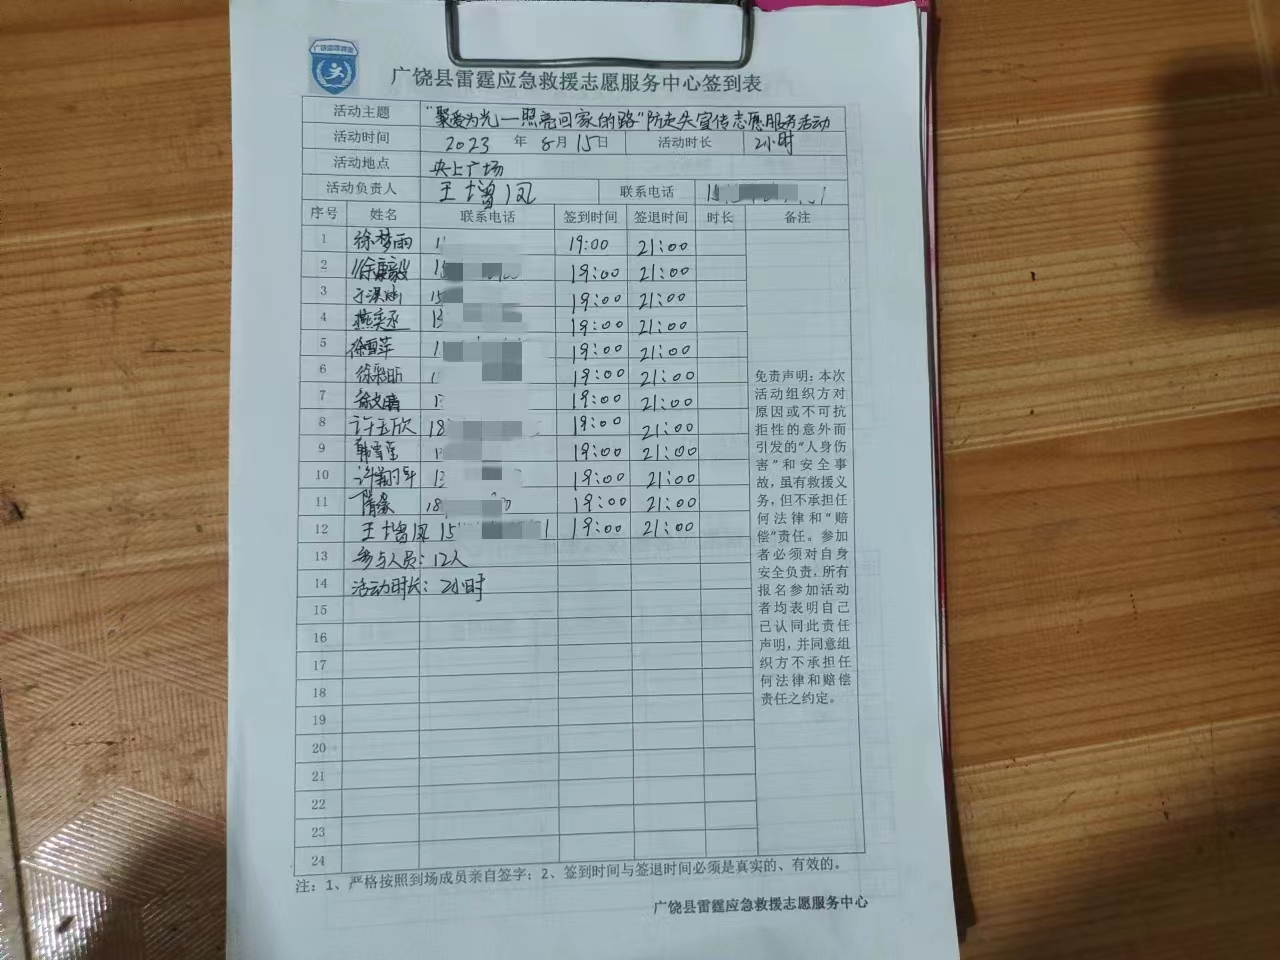 广饶县雷霆应急救援志愿服务中心签到表
活动主题 “聚爱为光一照亮回家的路”防走失宣传志愿服务活动
活动时间 2023 年 8月 15日 活动时长 2小时
活动地点 央上广场
活动负责人 王增凤 联系电话
序号 姓名 联系电话 签到时间 签退时间 时长 备注
1 徐梦雨 19:00 21:00
2 徐康毅 19:00 21:00
3 19:00 21:00
4 燕奕丞 19:00 21:00
5 徐雪萍 19:00 21:00
6 徐彩昕 19:00 21:00
7 徐文晴 19:00 21:00
8 许玉欣 18 19:00 21:00
9 韩雪莹 19:00 21:00
10 13 19:00 21:00
11 隋缘 18 19:00 21:00
12 王增凤 15 19:00 21:00
13 参与人员：12人
14 活动时长：2小时
15
16
17
18
19
20
21
22
23
24
免责声明：本次
活动组织方对
原因或不可抗
拒性的意外而
引发的“人身伤
害”和安全事
故，虽有救援义
务，但不承担任
何法律和“赔
偿”责任。参加
者必须对自身
安全负责，所有
报名参加活动
者均表明自己
已认同此责任
声明，并同意组
织方不承担任
何法律和赔偿
责任之约定。
注：1、严格按照到场成员亲自签字；2、签到时间与签退时间必须是真实的、有效的。
广饶县雷霆应急救援志愿服务中心